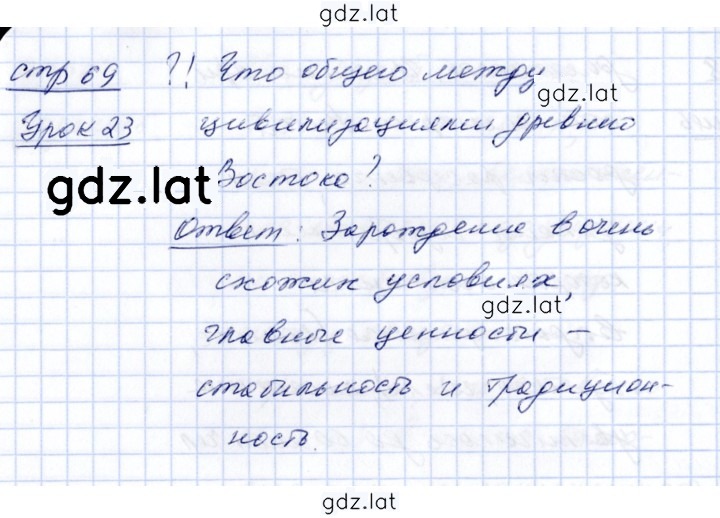 gdz.lat
стр 69 ?! Что общего между
gdz.lat
Урок 23 цивилизациями древнего
gdz.lat
Востока?
Ответ: Зарождение в очень
схожих условиях,
gdz.lat
главные ценности –
стабильность и традицион-
ность.
gdz.lat